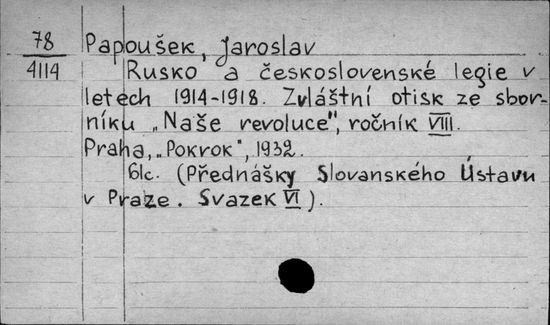 78 Papoušek, Jaroslav
4114 Rusko a československé legie v
letech 1914-1918. Zvláštní otisk ze sbor-
níku „Naše revoluce", ročník VIII.
Praha, „Pokrok", 1932.
61c. (Přednášky Slovanského Ústavu
v Praze. Svazek VI).